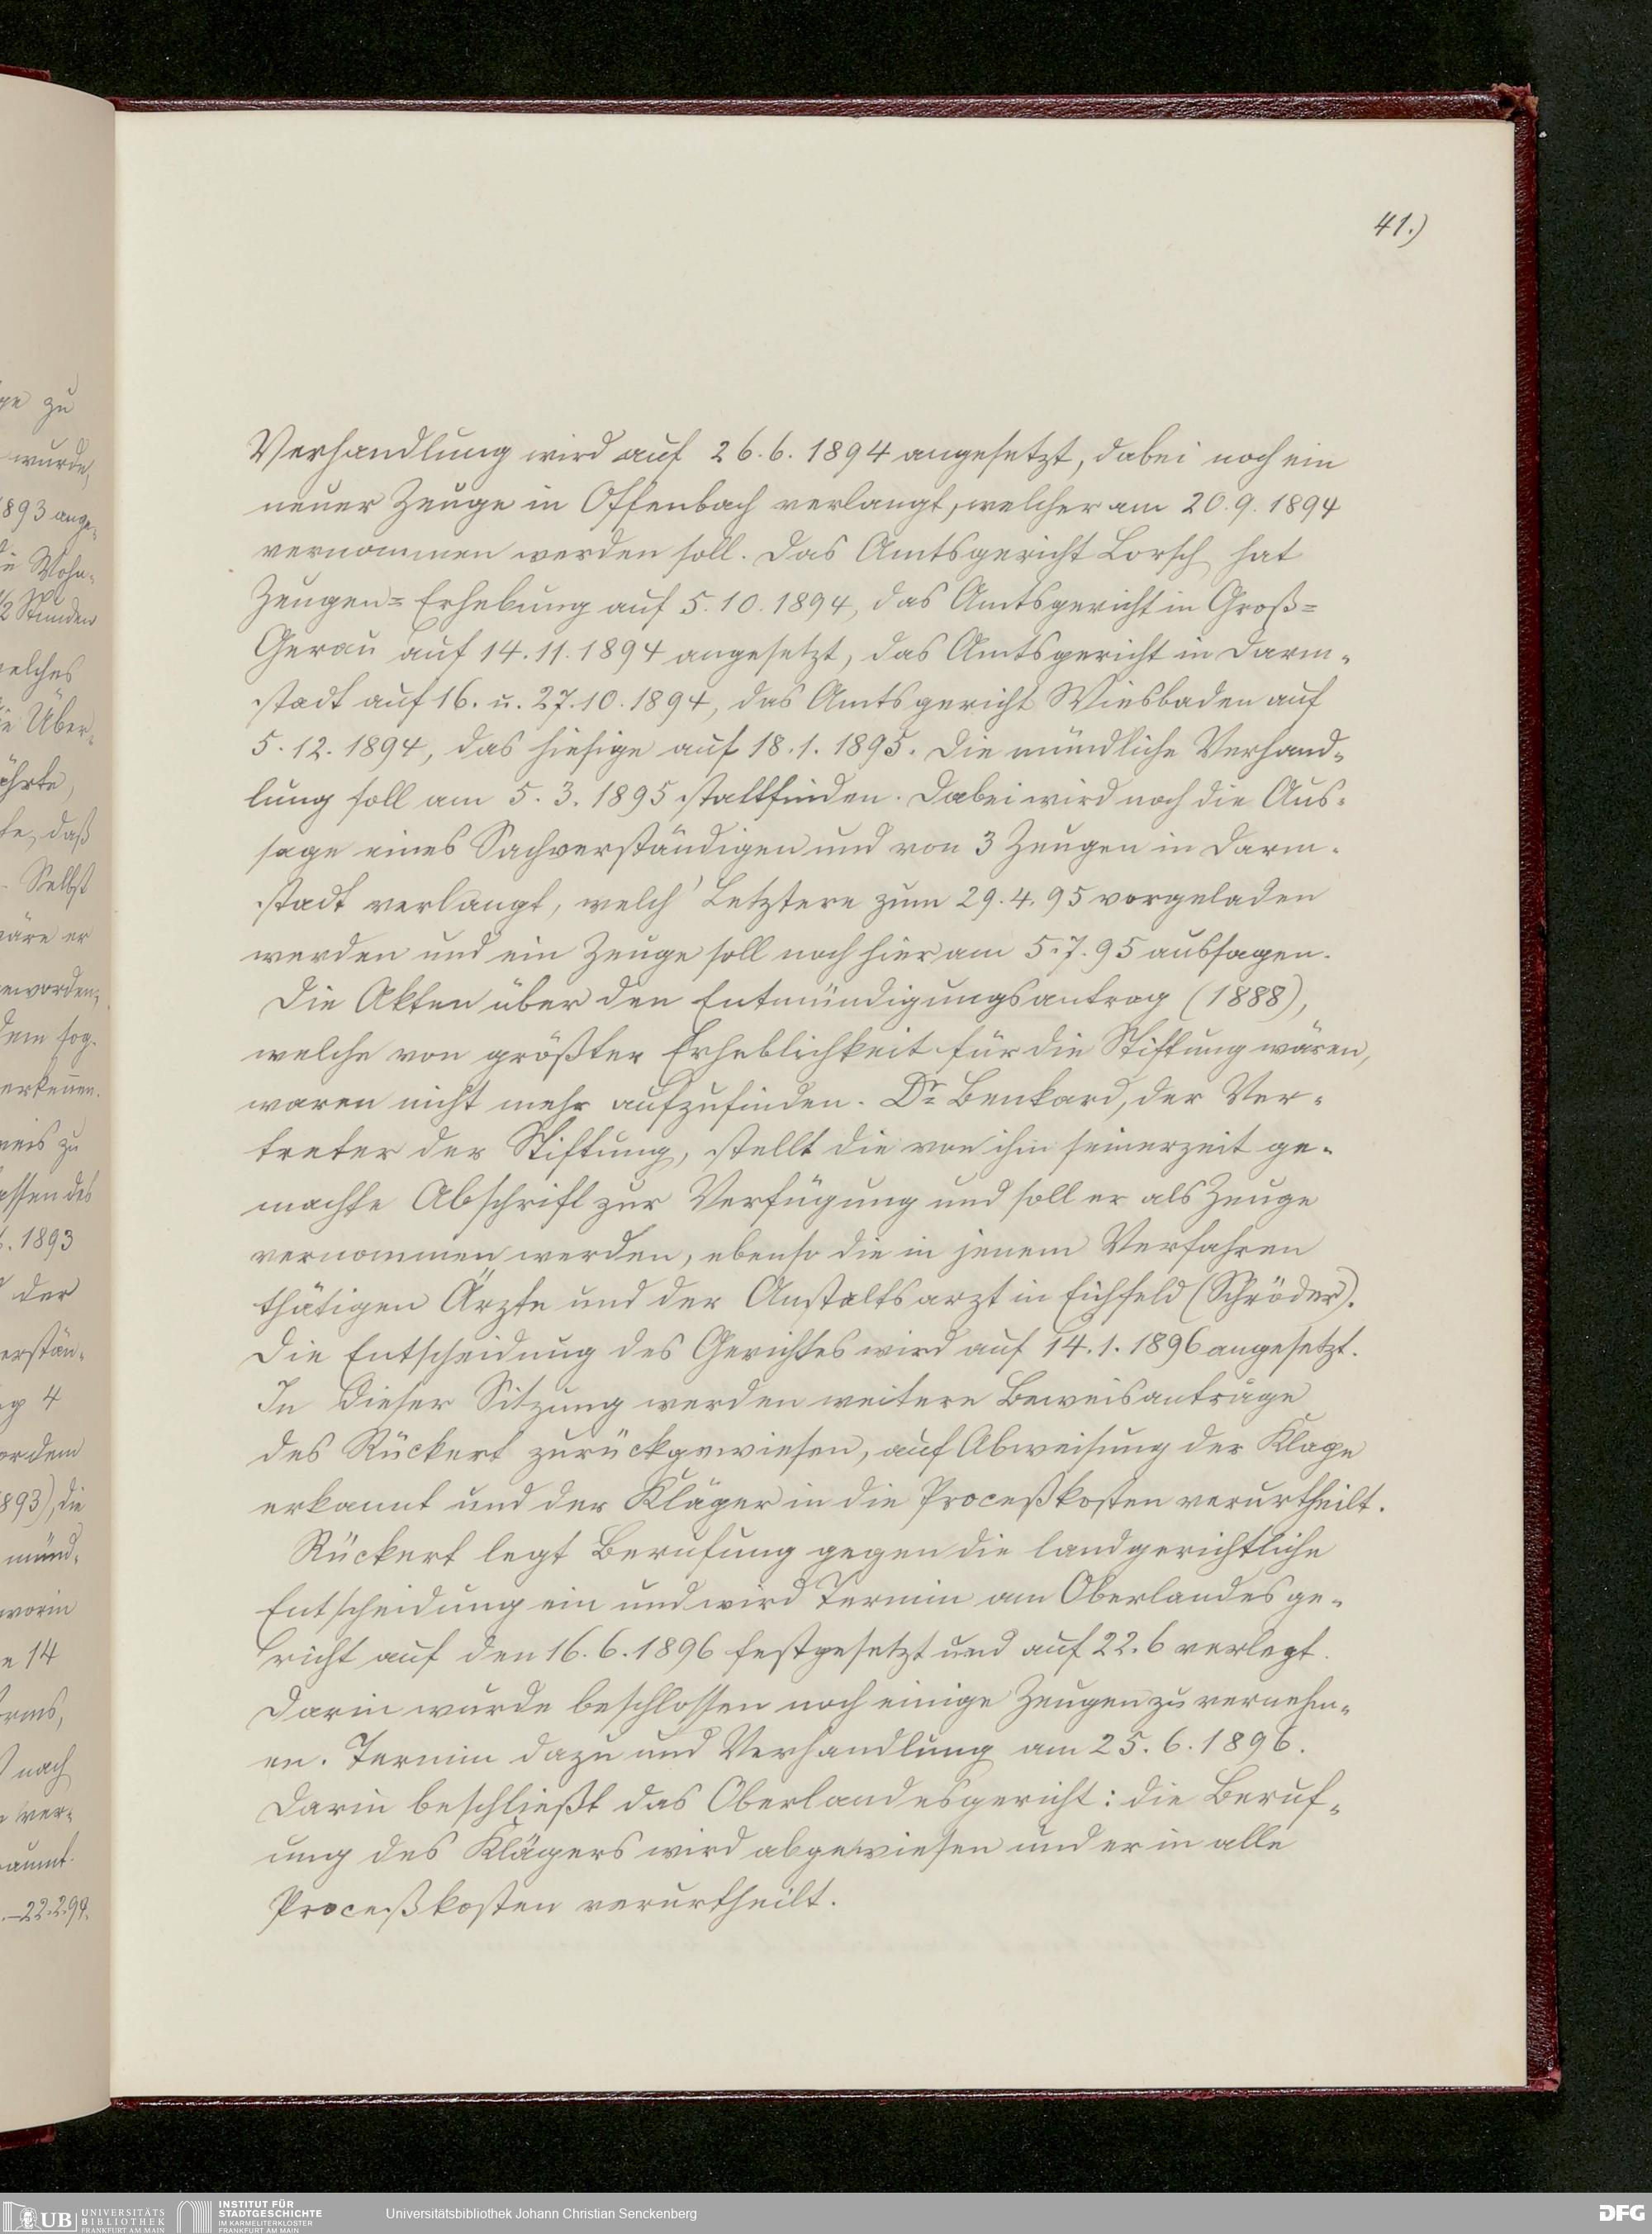 41.)
Verhandlung wird auf 26.6.1894 angesetzt, dabei noch ein
neuer Zeuge in Offenbach verlangt, welcher am 20.9.1894
vernommen werden soll. Das Amtsgericht Lorsch hat
Zeugen=Erhebung auf 5.10.1894, das Amtsgericht in Groß=
Gerau auf 14.11.1894 angesetzt, das Amtsgericht in Darm-
stadt auf 16. u. 27.10.1894, das Amtsgericht Wiesbaden auf
5.12.1894, das hiesige auf 18.1.1895. Die mündliche Verhand-
lung soll am 5.3.1895 stattfinden. Dabei wird noch die Aus-
sage eines Sachverständigen und von 3 Zeugen in Darm-
stadt verlangt, welch' Letztere zum 29.4.95 vorgeladen
werden und ein Zeuge soll noch hier am 5.7.95 aussagen.
Die Akten über den Entmündigungsantrag (1888),
welche von größter Erheblichkeit für die Stiftung wären,
waren nicht mehr aufzufinden. Dr. Benkard, der Ver-
treter der Stiftung, stellt die von ihm seinerzeit ge-
machte Abschrift zur Verfügung und soll er als Zeuge
vernommen werden, ebenso die in jenem Verfahren
thätigen Ärzte und der Anstaltsarzt in Eichfeld (Schröder).
Die Entscheidung des Gerichtes wird auf 14.1.1896 angesetzt.
In dieser Sitzung werden weitere Beweisanträge
des Rückert zurückgewiesen, auf Abweisung der Klage
erkannt und der Kläger in die Proceßkosten verurtheilt.
Rückert legt Berufung gegen die landgerichtliche
Entscheidung ein und wird Termin am Oberlandesge-
richt auf den 16.6.1896 festgesetzt und auf 22.6 verlegt.
Darin wurde beschlossen noch einige Zeugen zu vernehm-
en. Termin dazu und Verhandlung am 25.6.1896.
Darin beschließt das Oberlandesgericht: die Beruf-
ung des Klägers wird abgewiesen und er in alle
Proceßkosten verurtheilt.
UB UNIVERSITÄTS
BIBLIOTHEK
FRANKFURT AM MAIN
INSTITUT FÜR
STADTGESCHICHTE
IM KARMELITERKLOSTER
FRANKFURT AM MAIN
Universitätsbibliothek Johann Christian Senckenberg
DFG